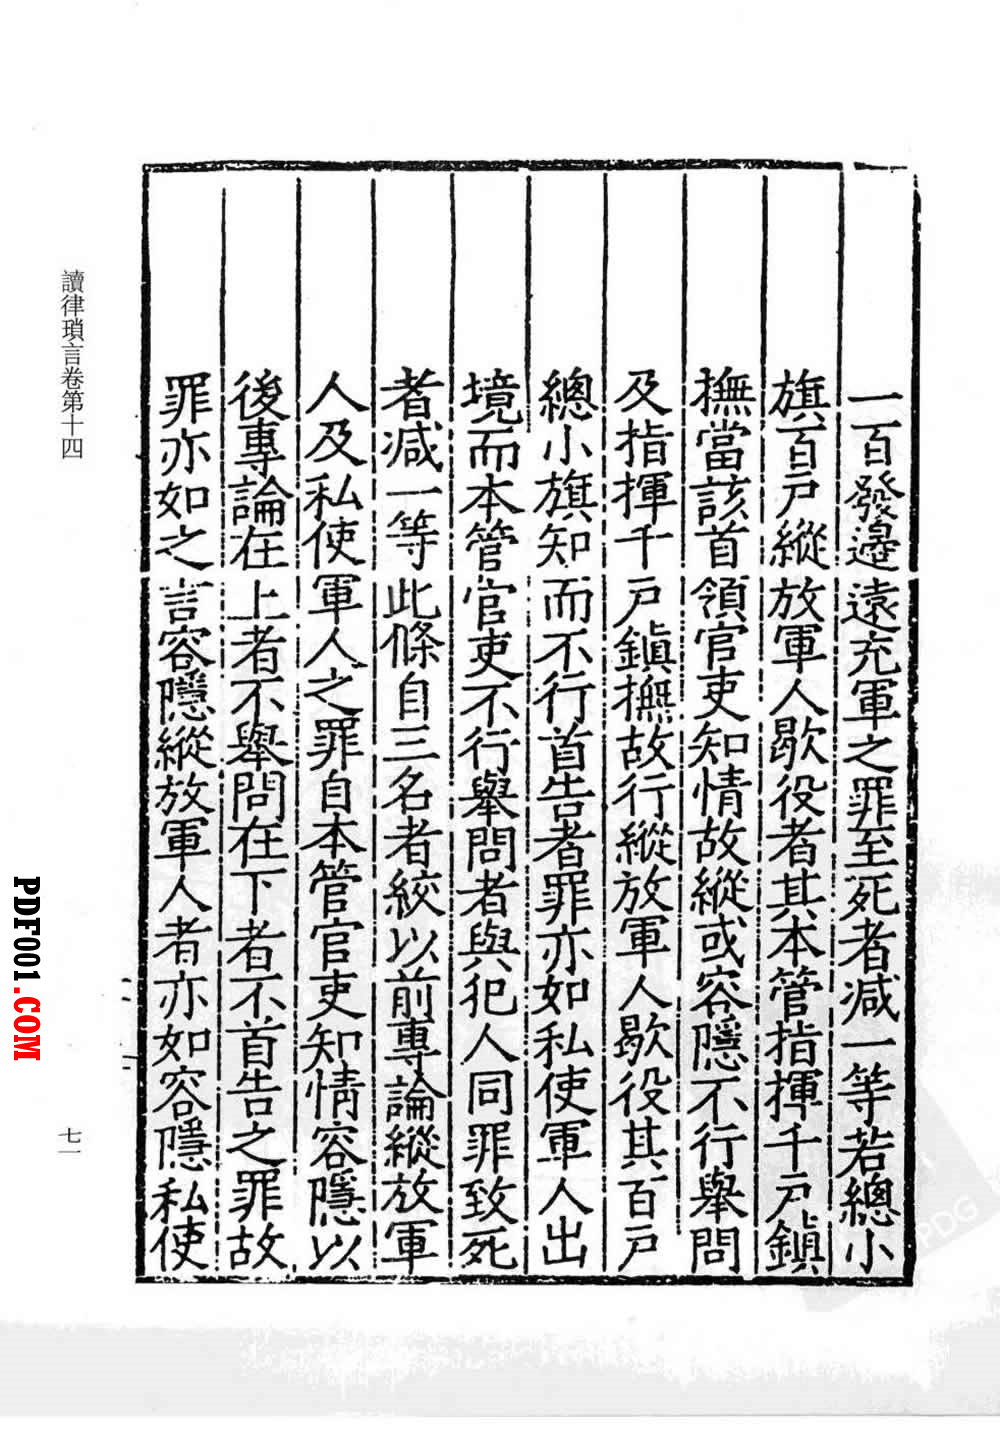 一百發邊遠充軍之罪至死者減一等若總小
旗百戶縱放軍人歇役者其本管指揮千戶鎮
撫當該首領官吏知情故縱或容隱不行舉問
及指揮千戶鎮撫故行縱放軍人歇役其百戶
總小旗知而不行首告者罪亦如私使軍人出
境而本管官吏不行舉問者與犯人同罪致死
者減一等此條自三名者絞以前專論縱放軍
人及私使軍人之罪自本管官吏知情容隱以
後專論在上者不舉問在下者不首告之罪故
罪亦如之言容隱縱放軍人者亦如容隱私使
讀律瑣言卷第十四
七一
PDF001.COM
PDG